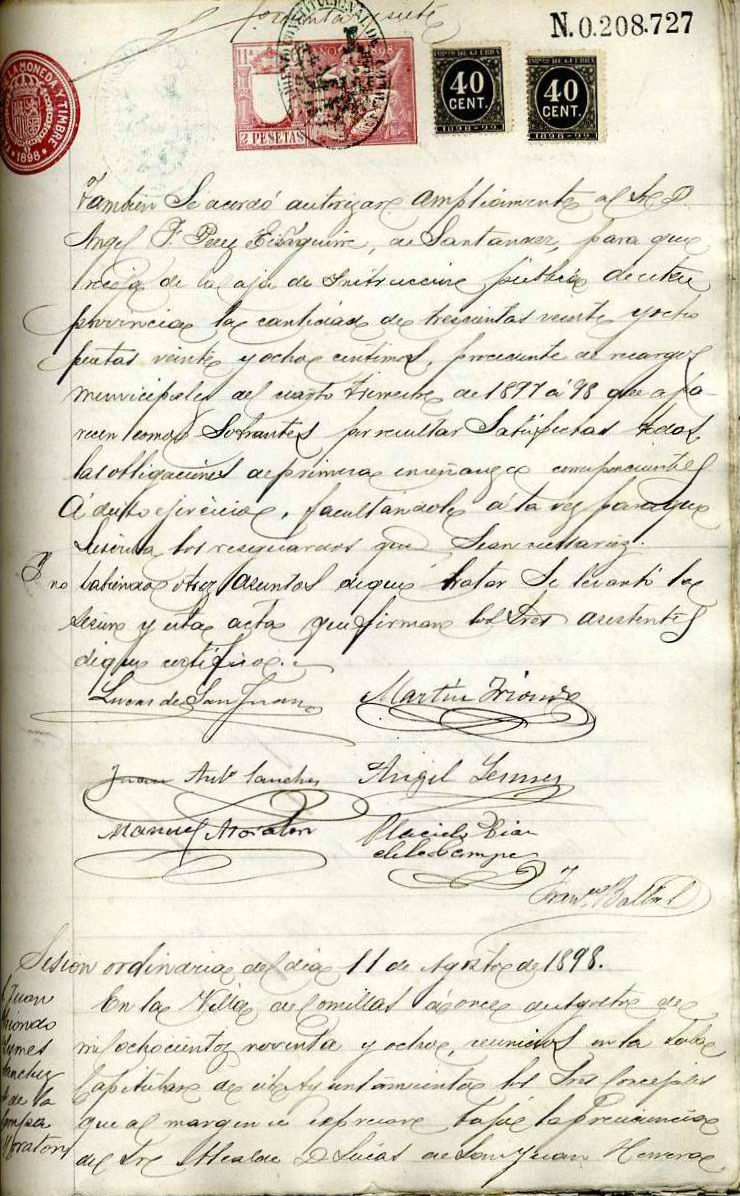 cuarenta y siete
N.0.208.727
MONEDA Y TIMBRE
1898
11ª
2 PESETAS
40
CENT.
1898-99
40
CENT.
1898-99
Tambien se acordó autorizar ampliamente al Sr. D.
Angel F. Perez Eizaguirre, de Santander, para que
recoja de la caja de Instruccion publica de esta
provincia la cantidad de trescientas veinte y ocho
pesetas veinte y ocho centimos, procedente de recargos
municipales del cuarto trimestre de 1897 á 98 que apa-
recen como sobrantes por resultar satisfechas todas
las obligaciones de primera enseñanza correspondientes
á dicho ejercicio, facultándole á la vez para que
suscriba los resguardos que sean necesarios.
Y no habiendo otros asuntos de que tratar se levantó la
sesion y esta acta que firman los Sres asistentes
de que certifico.
Lucas de San Juan
Martin Iriondo
Juan Antº Sanchez
Angel
Manuel Moraton
Placido Diaz
de la Campa
Franco Balbas
Sesion ordinaria del dia 11 de Agosto de 1898.
S. Juan
Iriondo
Sanchez
D. de la
Campa
Moraton
En la Villa de Comillas á once de Agosto de
mil ochocientos noventa y ocho, reunidos en la Sala
Capitular de este Ayuntamiento los Sres Concejales
que al margen se expresan bajo la presidencia
del Sr Alcalde D. Lucas de San Juan Herrera